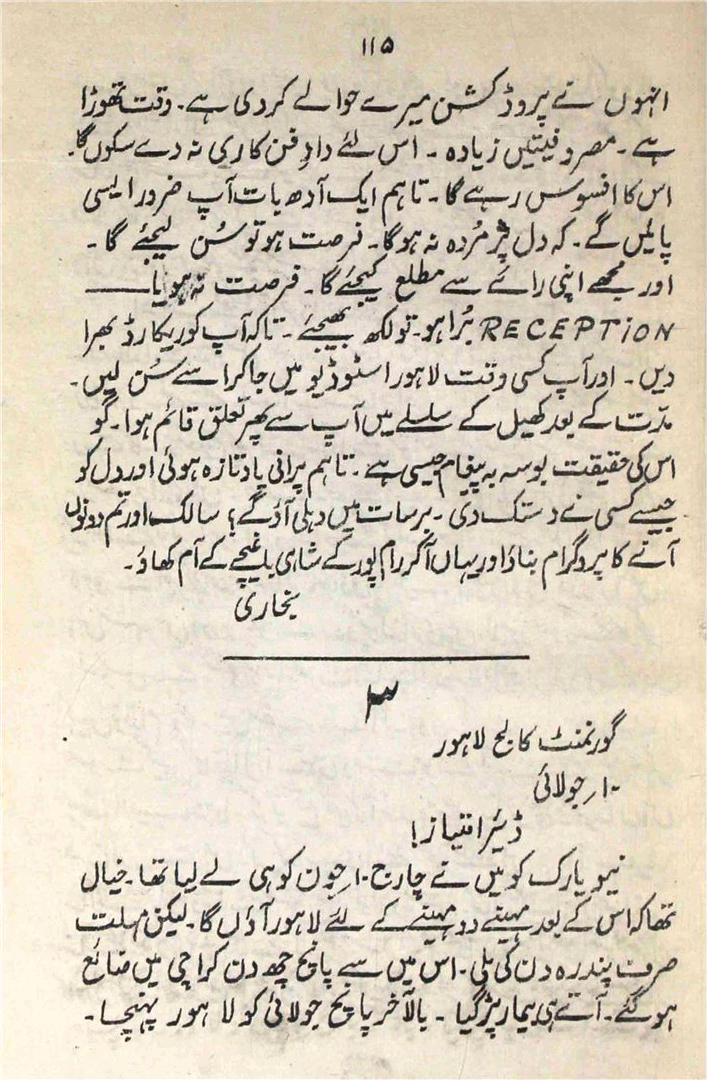 ۱۱۵
انہوں نے پروڈکشن میرے حوالے کر دی ہے۔ وقت تھوڑا
ہے۔ مصروفیتیں زیادہ۔ اس لئے دادِ فن کاری نہ دے سکوں گا۔
اس کا افسوس رہے گا۔ تاہم ایک آدھ بات آپ ضرور ایسی
پالیں گے۔ کہ دل پژمُردہ نہ ہوگا۔ فرصت ہو تو سُن لیجئے گا۔
اور مجھے اپنی رائے سے مطلع کیجئے گا۔ فرصت نہ ہو یا ——
RECEPTiON بُرا ہو۔ تو لکھ بھیجئے۔ تاکہ آپ کو ریکارڈ بھرا
دیں۔ اور آپ کسی وقت لاہور اسٹوڈیو میں جا کر اسے سُن لیں۔
مدّت کے بعد کھیل کے سلسلے میں آپ سے پھر تعلق قائم ہوا۔ گو
اس کی حقیقت بوسہ بہ پیغام جیسی ہے۔ تاہم پرانی یاد تازہ ہوئی اور دل کو
جیسے کسی نے دستک دی۔ برسات میں دہلی آؤ گے؟ سالک اور تم دونوں
آنے کا پروگرام بناؤ اور یہاں آکر رام پور کے شاہی باغیچے کے آم کھاؤ۔
بخاری
۳
گورنمنٹ کالج لاہور
۱۰؍ جولائی
ڈیئر امتیاز!
نیویارک کو میں نے چارج ۱۰؍ جون کو ہی لے لیا تھا۔ خیال
تھا کہ اس کے بعد مہینے دو مہینے کے لئے لاہور آؤں گا۔ لیکن مہلت
صرف پندرہ دن کی ملی۔ اس میں سے پانچ چھ دن کراچی میں ضائع
ہو گئے۔ آتے ہی بیمار پڑ گیا۔ بالآخر پانچ جولائی کو لاہور پہنچا۔